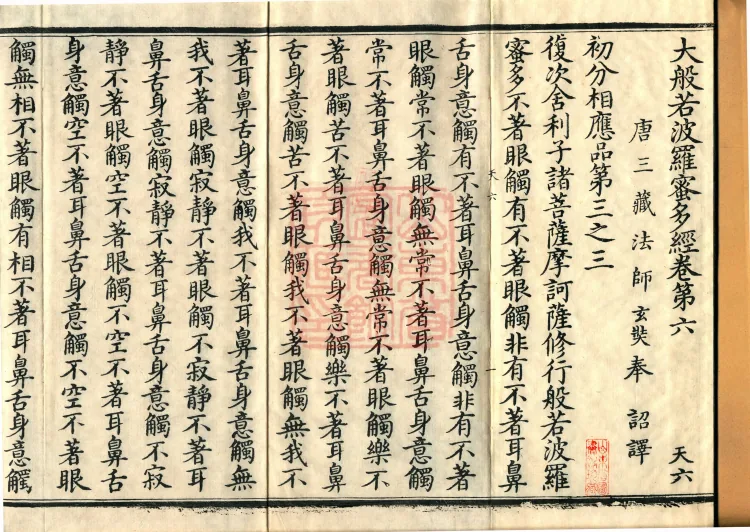 大般若波羅蜜多經卷第六 天六
唐三藏法師玄奘奉 詔譯
初分相應品第三之三
復次舍利子諸菩薩摩訶薩修行般若波羅
蜜多不著眼觸有不著眼觸非有不著耳鼻
天六 一
舌身意觸有不著耳鼻舌身意觸非有不著
眼觸常不著眼觸無常不著耳鼻舌身意觸
常不著耳鼻舌身意觸無常不著眼觸樂不
著眼觸苦不著耳鼻舌身意觸樂不著耳鼻
舌身意觸苦不著眼觸我不著眼觸無我不
著耳鼻舌身意觸我不著耳鼻舌身意觸無
我不著眼觸寂靜不著眼觸不寂靜不著耳
鼻舌身意觸寂靜不著耳鼻舌身意觸不寂
靜不著眼觸空不著眼觸不空不著耳鼻舌
身意觸空不著耳鼻舌身意觸不空不著眼
觸無相不著眼觸有相不著耳鼻舌身意觸